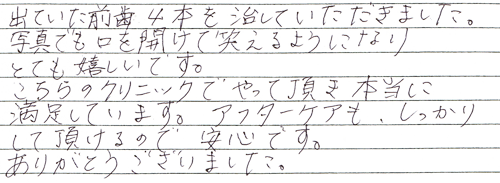 出ていた前歯4本を治していただきました。
写真でも口を開けて笑えるようになり
とても嬉しいです。
こちらのクリニックでやって頂き本当に
満足しています。アフターケアも、しっかり
して頂けるので安心です。
ありがとうございました。